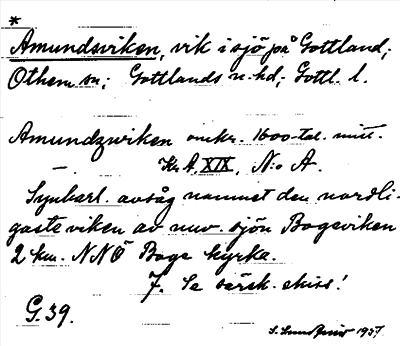 *
Amundsviken, vik i sjö på Gottland;
Othem sn; Gottlands n. hd; Gottl. l.
Amundzwiken omkr. 1600-tal. mitt.
— Kr. A. XIX, N:o A.
Synbarl. avsåg namnet den nordli-
gaste viken av nuv. sjön Bogeviken
2 km. NNÖ Boge kyrka.
7. Se särsk. skiss!
G. 39.
1937